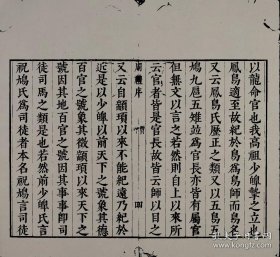 以龍命官也我高祖少皥摯之立也
鳳鳥適至故紀於鳥為鳥師而鳥名
又云鳳鳥氏歷正之類又以五鳥五
鳩九扈五雉並為官長亦皆有屬官
但無文以言之若然則自上以來所
云官者皆是官長故皆云師以目之
周禮序
又云自顓頊以來不能紀遠乃紀於
近是以少皥以前天下之號象其德
百官之號象其徵顓頊以來天下之
號因其地百官之號因其事事即司
徒司馬之類是也若然前少皥氏言
祝鳩氏為司徒者本名祝鳩言司徒